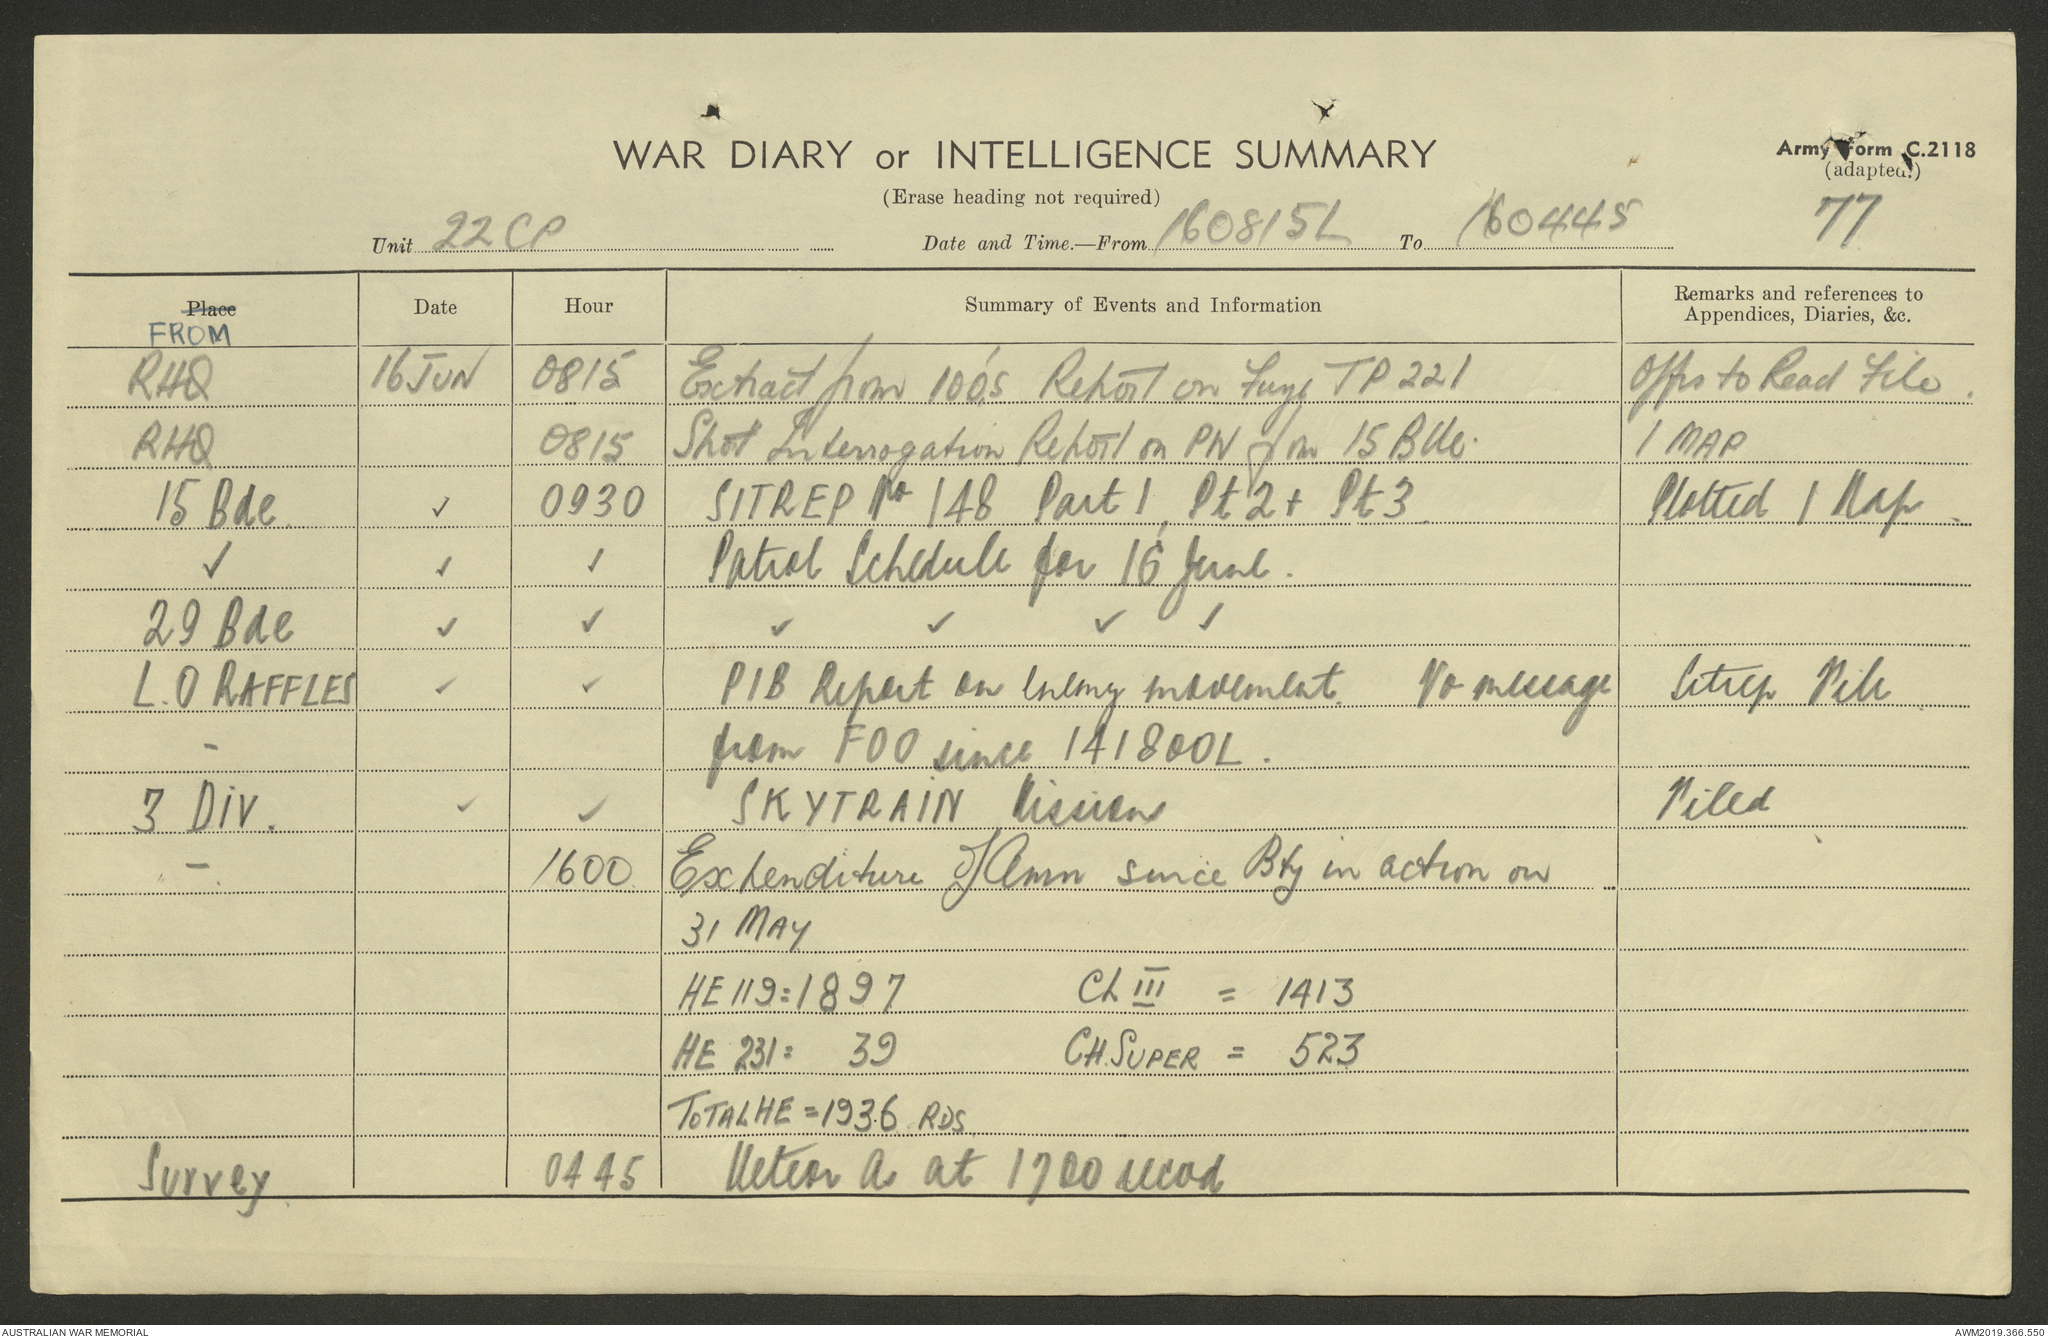 WAR DIARY or INTELLIGENCE SUMMARY
Army Form C.2118
(adapted.)
(Erase heading not required)
77
Unit 22 CP Date and Time.—From 160815L To 160445
Place Date Hour Summary of Events and Information Remarks and references to
Appendices, Diaries, &c.
FROM
RHQ 16 JUN 0815 Extract from 100's Report on Fuze TP 221 Offrs to Read File.
RHQ 0815 Shot Interrogation Report on PW from 15 Bde. 1 MAP
15 Bde. ✓ 0930 SITREP No 148 Part 1, Pt 2 + Pt 3. Plotted 1 Map.
✓ ✓ ✓ Patrol Schedule for 16 June.
29 Bde ✓ ✓ ✓ ✓ ✓ ✓
L.O RAFFLES ✓ ✓ PIB Report on Enemy movement. No message Sitrep File
- from FOO since 141800L.
3 Div. ✓ ✓ SKYTRAIN Missions Filed
- 1600 Expenditure of Amn since Bty in action on
31 MAY
HE 119 = 1897 CH III = 1413
HE 231 = 39 CH. SUPER = 523
TOTAL HE = 1936 RDS
Survey. 0445 Meteor as at 1700
AUSTRALIAN WAR MEMORIAL
AWM2019.366.550